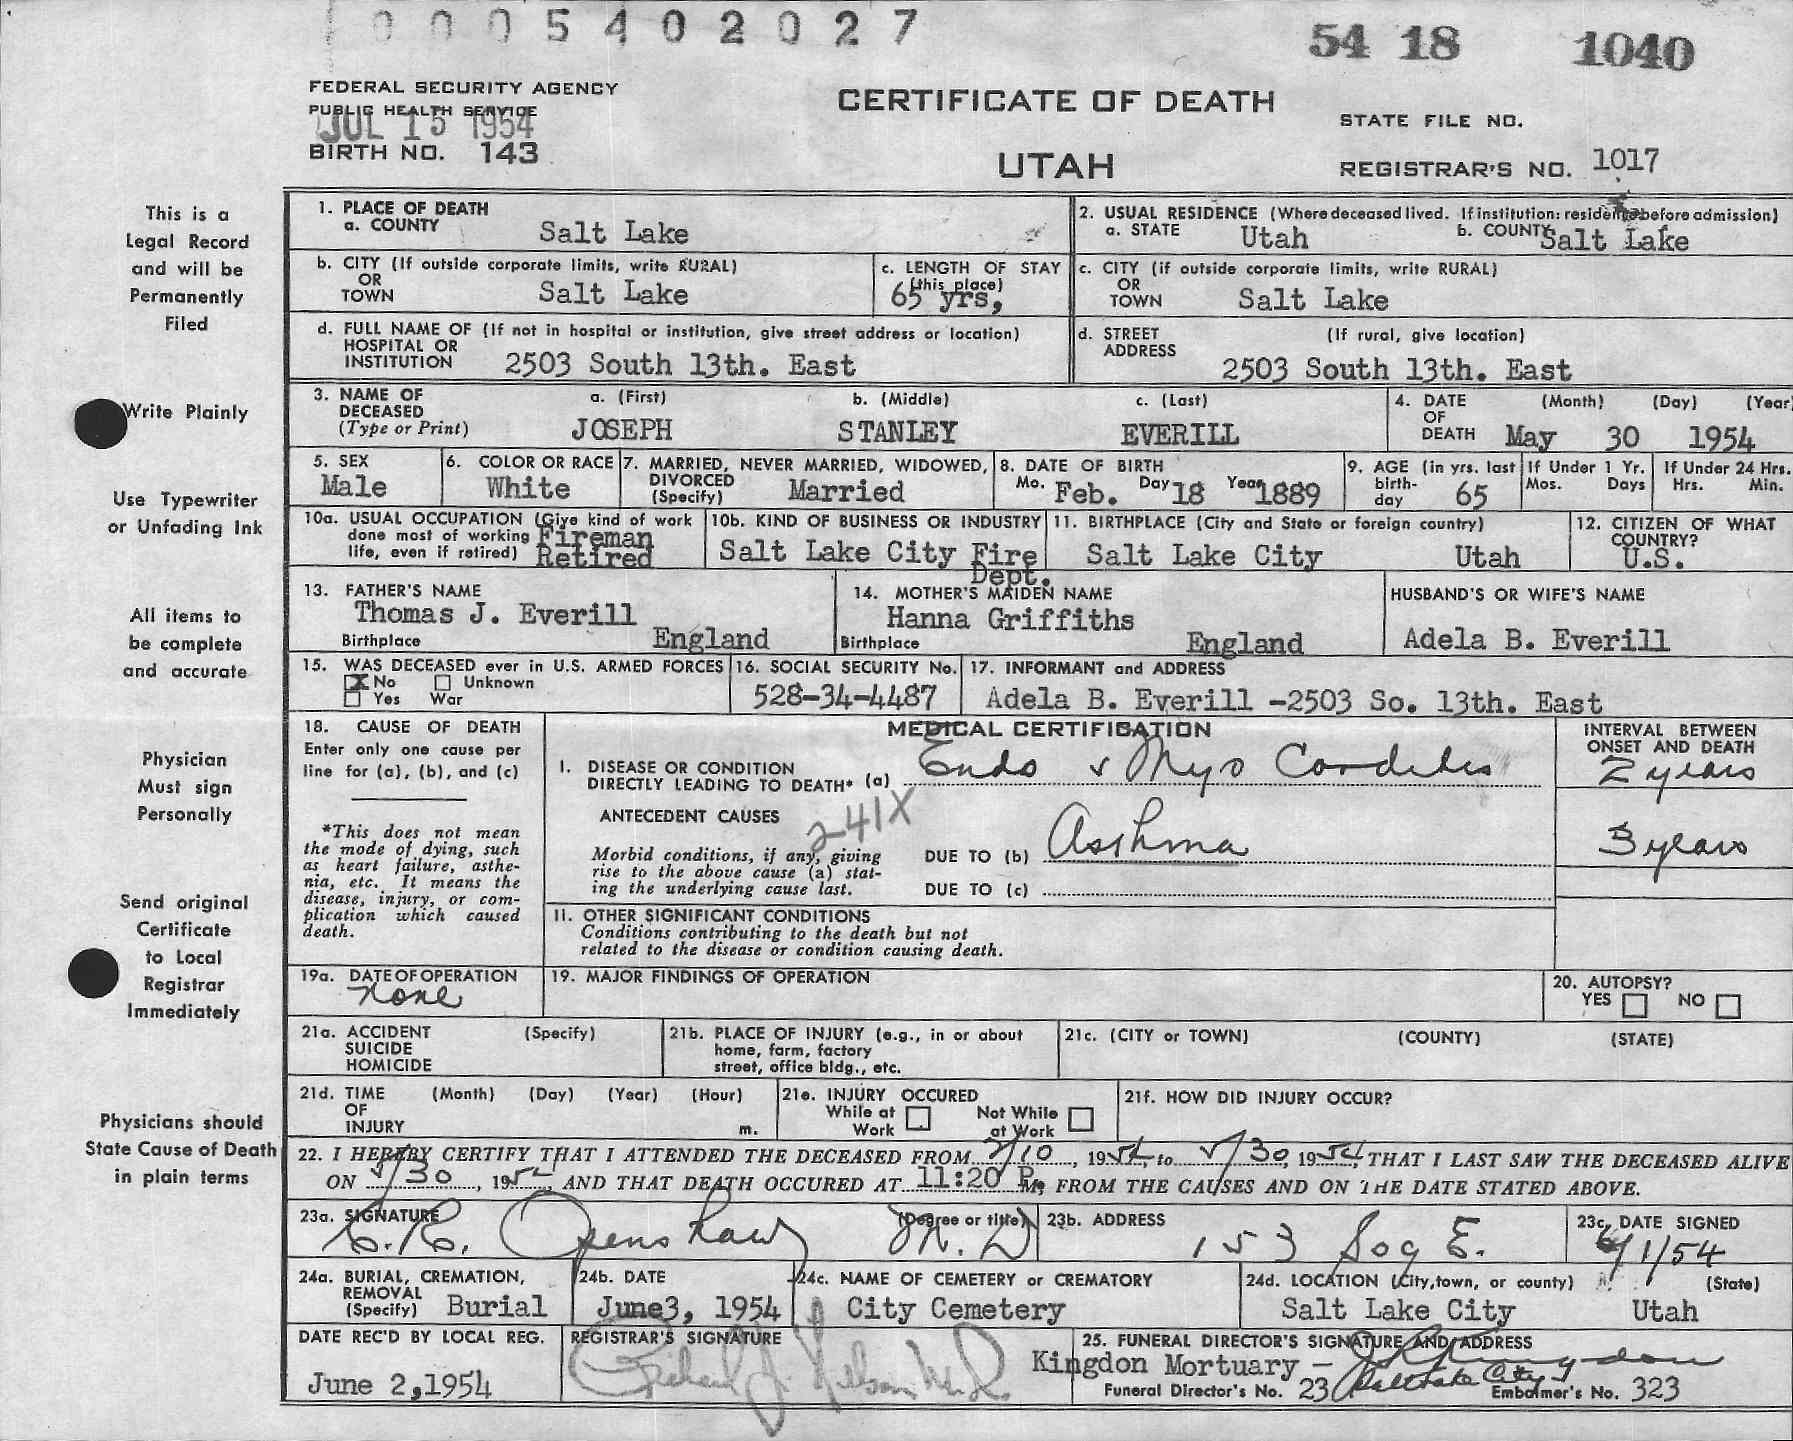 0005402027
54 18 1040
FEDERAL SECURITY AGENCY
PUBLIC HEALTH SERVICE
JUL 15 1954
BIRTH NO. 143
CERTIFICATE OF DEATH
UTAH
STATE FILE NO.
REGISTRAR'S NO. 1017
This is a
Legal Record
and will be
Permanently
Filed
Write Plainly
Use Typewriter
or Unfading Ink
All items to
be complete
and accurate
Physician
Must sign
Personally
Send original
Certificate
to Local
Registrar
Immediately
Physicians should
State Cause of Death
in plain terms
1. PLACE OF DEATH
a. COUNTY Salt Lake
2. USUAL RESIDENCE (Where deceased lived. If institution: residence before admission)
a. STATE Utah b. COUNTY Salt Lake
b. CITY (If outside corporate limits, write RURAL)
OR
TOWN Salt Lake
c. LENGTH OF STAY
(this place)
65 yrs,
c. CITY (if outside corporate limits, write RURAL)
OR
TOWN Salt Lake
d. FULL NAME OF (If not in hospital or institution, give street address or location)
HOSPITAL OR
INSTITUTION 2503 South 13th. East
d. STREET (If rural, give location)
ADDRESS
2503 South 13th. East
3. NAME OF a. (First) b. (Middle) c. (Last)
DECEASED
(Type or Print) JOSEPH STANLEY EVERILL
4. DATE (Month) (Day) (Year)
OF
DEATH May 30 1954
5. SEX
Male
6. COLOR OR RACE
White
7. MARRIED, NEVER MARRIED, WIDOWED,
DIVORCED
(Specify) Married
8. DATE OF BIRTH
Mo. Feb. Day 18 Year 1889
9. AGE (in yrs. last
birth-
day 65
If Under 1 Yr.
Mos. Days
If Under 24 Hrs.
Hrs. Min.
10a. USUAL OCCUPATION (Give kind of work
done most of working Fireman
life, even if retired) Retired
10b. KIND OF BUSINESS OR INDUSTRY
Salt Lake City Fire
Dept.
11. BIRTHPLACE (City and State or foreign country)
Salt Lake City Utah
12. CITIZEN OF WHAT
COUNTRY?
U.S.
13. FATHER'S NAME
Thomas J. Everill
Birthplace England
14. MOTHER'S MAIDEN NAME
Hanna Griffiths
Birthplace England
HUSBAND'S OR WIFE'S NAME
Adela B. Everill
15. WAS DECEASED ever in U.S. ARMED FORCES
X No Unknown
Yes War
16. SOCIAL SECURITY No.
528-34-4487
17. INFORMANT and ADDRESS
Adela B. Everill -2503 So. 13th. East
18. CAUSE OF DEATH
Enter only one cause per
line for (a), (b), and (c)
*This does not mean
the mode of dying, such
as heart failure, asthe-
nia, etc. It means the
disease, injury, or com-
plication which caused
death.
MEDICAL CERTIFICATION
I. DISEASE OR CONDITION
DIRECTLY LEADING TO DEATH* (a) Endo & Myo Cardites
ANTECEDENT CAUSES
241X
Morbid conditions, if any, giving
rise to the above cause (a) stat-
ing the underlying cause last.
DUE TO (b) Asthma
DUE TO (c)
II. OTHER SIGNIFICANT CONDITIONS
Conditions contributing to the death but not
related to the disease or condition causing death.
INTERVAL BETWEEN
ONSET AND DEATH
2 years
3 years
19a. DATE OF OPERATION
none
19. MAJOR FINDINGS OF OPERATION
20. AUTOPSY?
YES NO
21a. ACCIDENT (Specify)
SUICIDE
HOMICIDE
21b. PLACE OF INJURY (e.g., in or about
home, farm, factory
street, office bldg., etc.
21c. (CITY or TOWN) (COUNTY) (STATE)
21d. TIME (Month) (Day) (Year) (Hour)
OF
INJURY m.
21e. INJURY OCCURED
While at Not While
Work at Work
21f. HOW DID INJURY OCCUR?
22. I HEREBY CERTIFY THAT I ATTENDED THE DECEASED FROM /10, 1954, to 5/30, 1954, THAT I LAST SAW THE DECEASED ALIVE
ON 5/30, 1954, AND THAT DEATH OCCURED AT 11:20 P.M, FROM THE CAUSES AND ON THE DATE STATED ABOVE.
23a. SIGNATURE (Degree or title)
C.R. Openshaw M.D
23b. ADDRESS
153 So 9 E.
23c. DATE SIGNED
6/1/54
24a. BURIAL, CREMATION,
REMOVAL
(Specify) Burial
24b. DATE
June3, 1954
24c. NAME OF CEMETERY or CREMATORY
City Cemetery
24d. LOCATION (City, town, or county) (State)
Salt Lake City Utah
DATE REC'D BY LOCAL REG.
June 2,1954
REGISTRAR'S SIGNATURE
Richard J. Nelson M.D.
25. FUNERAL DIRECTOR'S SIGNATURE AND ADDRESS
Kingdon Mortuary -
Salt Lake City
Funeral Director's No. 23 Embalmer's No. 323